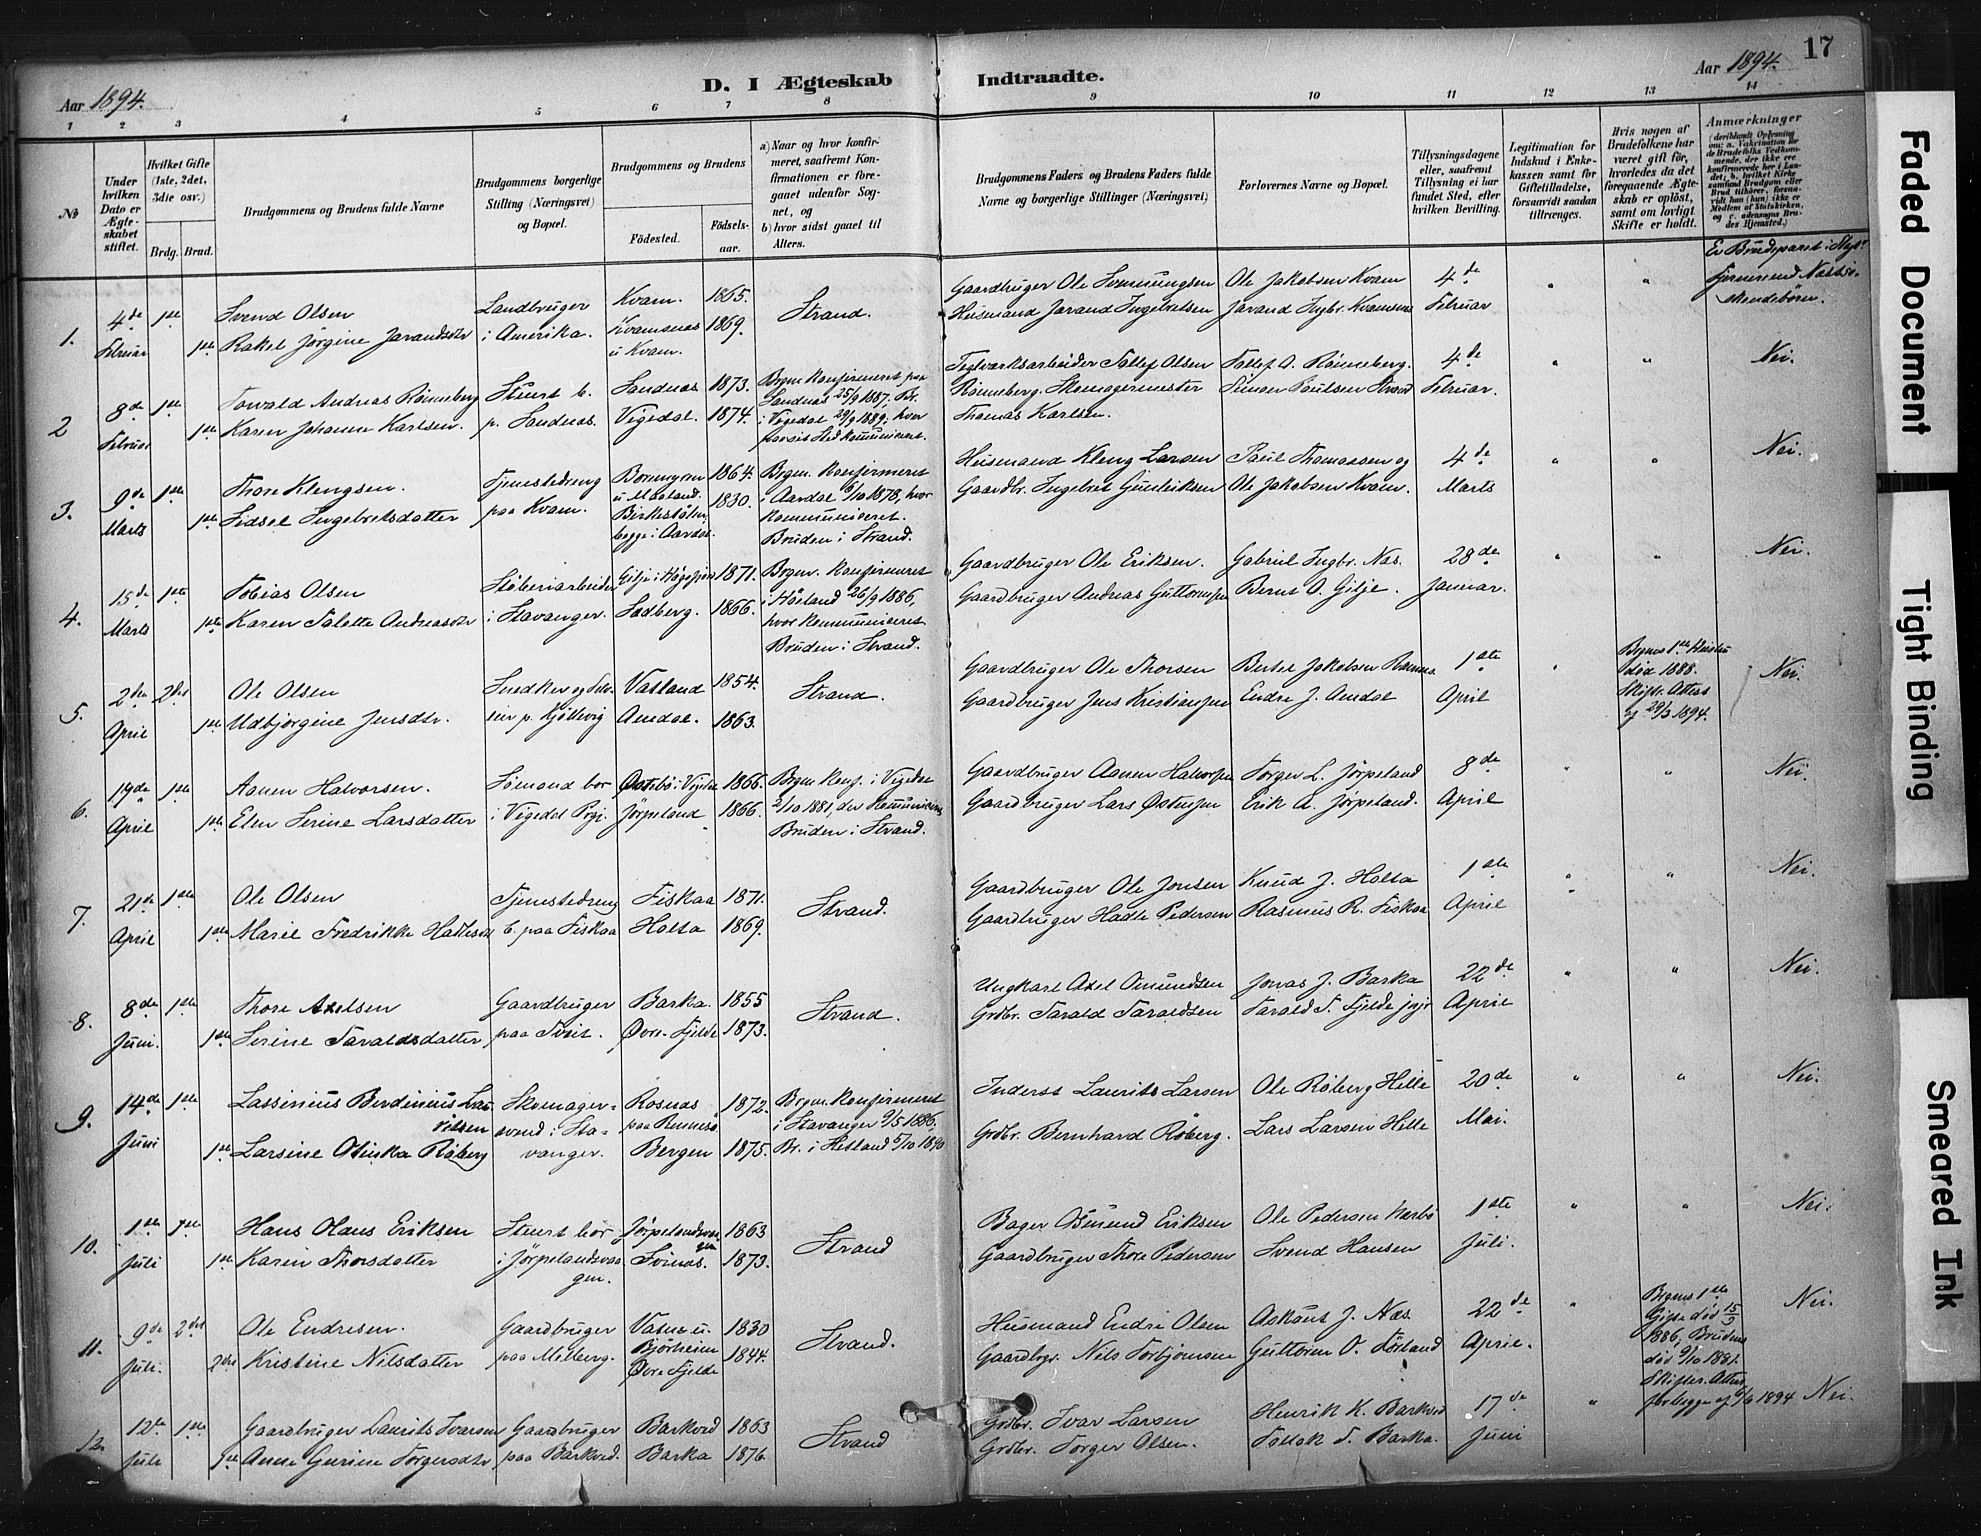 Aar 1894.
D. I Ægteskab Indtraadte.
Aar 1894.
17
1 2 3 4 5 6 7 8 9 10 11 12 13 14
№
Under hvilken Dato er Ægteskabet stiftet.
Hvilket Gifte (1ste, 2det, 3die osv.)
Brdg. Brud.
Brudgommens og Brudens fulde Navne
Brudgommens borgerlige Stilling (Næringsvei) og Bopæl.
Brudgommens og Brudens
Fødested.
Fødselsaar.
a) Naar og hvor konfirmeret, saafremt Konfirmationen er foregaaet udenfor Sognet, og
b) hvor sidst gaaet til Alters.
Brudgommens Faders og Brudens Faders fulde Navne og borgerlige Stillinger (Næringsvei)
Forlovernes Navne og Bopæl.
Tillysningsdagene eller, saafremt Tillysning ei har fundet Sted, efter hvilken Bevilling.
Legitimation for Indskud i Enkekassen samt for Giftetilladelse, forsaavidt saadan tiltrænges.
Hvis nogen af Brudefolkene har været gift før, hvorledes da det foregaaende Ægteskab er opløst, samt om lovligt Skifte er holdt.
Anmærkninger
1.
4de Februar
1ste
1ste
Svend Olsen
Rakel Jørgine Javandsdtr
Landbruger
i Amerika.
Kvam.
Kvamsnes
u Kvam.
1865.
1869.
Strand.
Gaardbruger Ole Svenungsen
Husmand Javand Ingebretsen
Ole Jakobsen Kvam
Javand Ingbr. Kvamsnes
4de
Februar
2
8de Februar
1ste
1ste
Torvald Andreas Rønneberg
Karen Johanne Karlsen.
Stuert b.
p. Sandnes.
Sandnes
Vigedal.
1873.
1874.
Brgm konfirmeret paa
Sandnes 25/9 1887, Br.
i Vigedal 29/9 1889, hvor
Teglværksarbeider Tollef Olsen
Rønneberg. Skomagermester
Thomas Karlsen.
Tollef A. Rønneberg.
Simon Paulsen Strand
4de
Februar.
Nei.
3.
9de Marts
1ste
1ste
Thore Klengsen.
Sidsel Ingebretsdatter
Tjenestedreng
paa Kvam.
begge i Aardal.
1864.
1830.
Brgm. konfirmeret
i Aardal 6/10 1878, hvor
kommuniceret.
Bruden i Strand.
Husmand Kleng Larsen
Gaardbr. Ingebret Gunleiksen
Paul Thomassen og
Ole Jakobsen Kvam.
4de
Marts
Nei.
4.
15de Marts
1ste
1ste
Tobias Olsen
Karen Talette Andreasdtr
Støberiarbeider
i Stavanger.
Gilje i Høgsfjord
Sadberg.
1871.
1866.
Brgm. konfirmeret
i Høiland 26/9 1886,
hvor kommuniceret
Bruden i Strand.
Gaardbruger Ole Eriksen.
Gaardbruger Andreas Guttormsen
Gabriel Ingbr. Nas.
Bernt O. Gilje.
28de
Januar.
Nei.
5.
2den April
2det
1ste
Ole Olsen
Udbjørgine Jensdtr.
Snedker og Selv-
eier p. Kjølevig
Vatland
Amdal.
1854.
1863.
Strand.
Gaardbruger Ole Thorsen
Gaardbruger Jens Kristiansen
Bertel Jakobsen
Endre J. Amdal
1ste
April
død 1888.
29/3 1894.
Nei.
6.
19de April
1ste
1ste
Aanen Halvorsen.
Elen Serine Larsdatter
Sømand bor
i Vigedal Prgj.
Østebø i Vigedal
Jørpeland
1866.
1866.
Brgm konf. i Vigedal
2/10 1881, der kommuniceret
Bruden i Strand.
Gaardbruger Aanen Halvorsen
Gaardbruger Lars Østensen
Torger L. Jørpeland
Erik A. Jørpeland.
8de
April
Nei.
7.
21de April
1ste
1ste
Ole Olsen
Marie Fredrikke Hadlesdtr
Tjenestedreng
b. paa Fiskaa
Fiskaa
Holta
1871.
1869.
Strand.
Gaardbruger Ole Jonsen
Gaardbruger Hadle Pedersen
Knud J. Holta
Rasmus R. Fiskaa
1ste
April
Nei.
8.
8de Juni.
1ste
1ste
Thore Axelsen
Serine Taraldsdatter
Gaardbruger
paa Tveit.
Barka.
Øvre-Fjelde
1855
1873.
Strand.
Ungkarl Axel Omundsen
Grdbr. Tarald Taraldsen
Jonas J. Barka
Tarald T. Fjelde
22de
April
Nei.
9.
14de Juni
1ste
1ste
Lassinius Berdinius Lauritsen
Larsine Olinka Røberg
Skomager-
svend i Sta-
vanger.
Rosnæs
paa Rennesø
Bergen
1872.
1875.
Brgm. konfirmeret
i Stavanger 9/5 1886,
Br. i Hetland 5/10 1890
Inderst Laurits Larsen
Grdbr. Bernhard Røberg.
Ole Røberg Hille
Lars Larsen Hille
20de
Mai.
Nei.
10.
1ste Juli
1ste
1ste
Hans Olaus Eriksen
Karin Thorsdatter
Stuert bor
i Jørpelandsvaa
gen.
Jørpelandsvaa
gen
Svines.
1863
1873.
Strand
Bager Osmund Eriksen
Gaardbruger Thore Pedersen
Ole Pedersen
Svend Hansen
1ste
Juli.
Nei.
11.
9de Juli
2det
2det
Ole Endresen.
Kristine Nilsdatter
Gaardbruger
paa Melberg.
Vatne u.
Bjørheim
Øvre Fjelde
1830
1844.
Strand.
Husmand Endre Olsen
Gaardbrgr. Nils Torbjørnsen
Askaut J. Nes.
Guttorm O. Tøtland
22de
April.
Brgms 1ste
Gifte død 15/3
1886, Brudens
død 9/10 1881.
Skifter. Attest
Nei.
12.
12te Juli
1ste
1ste
Gaardbruger Laurits Ivarsen
Anne Gurine Torgersdtr
Gaardbruger
paa Barkved.
Barkved
Barka
1863
1876.
Strand
Grdbr. Ivar Larsen
Grdbr. Torger Olsen.
Henrik K. Barkved
Tollak T. Barka.
17de
Juni
Nei.
Faded Document
Tight Binding
Smeared Ink